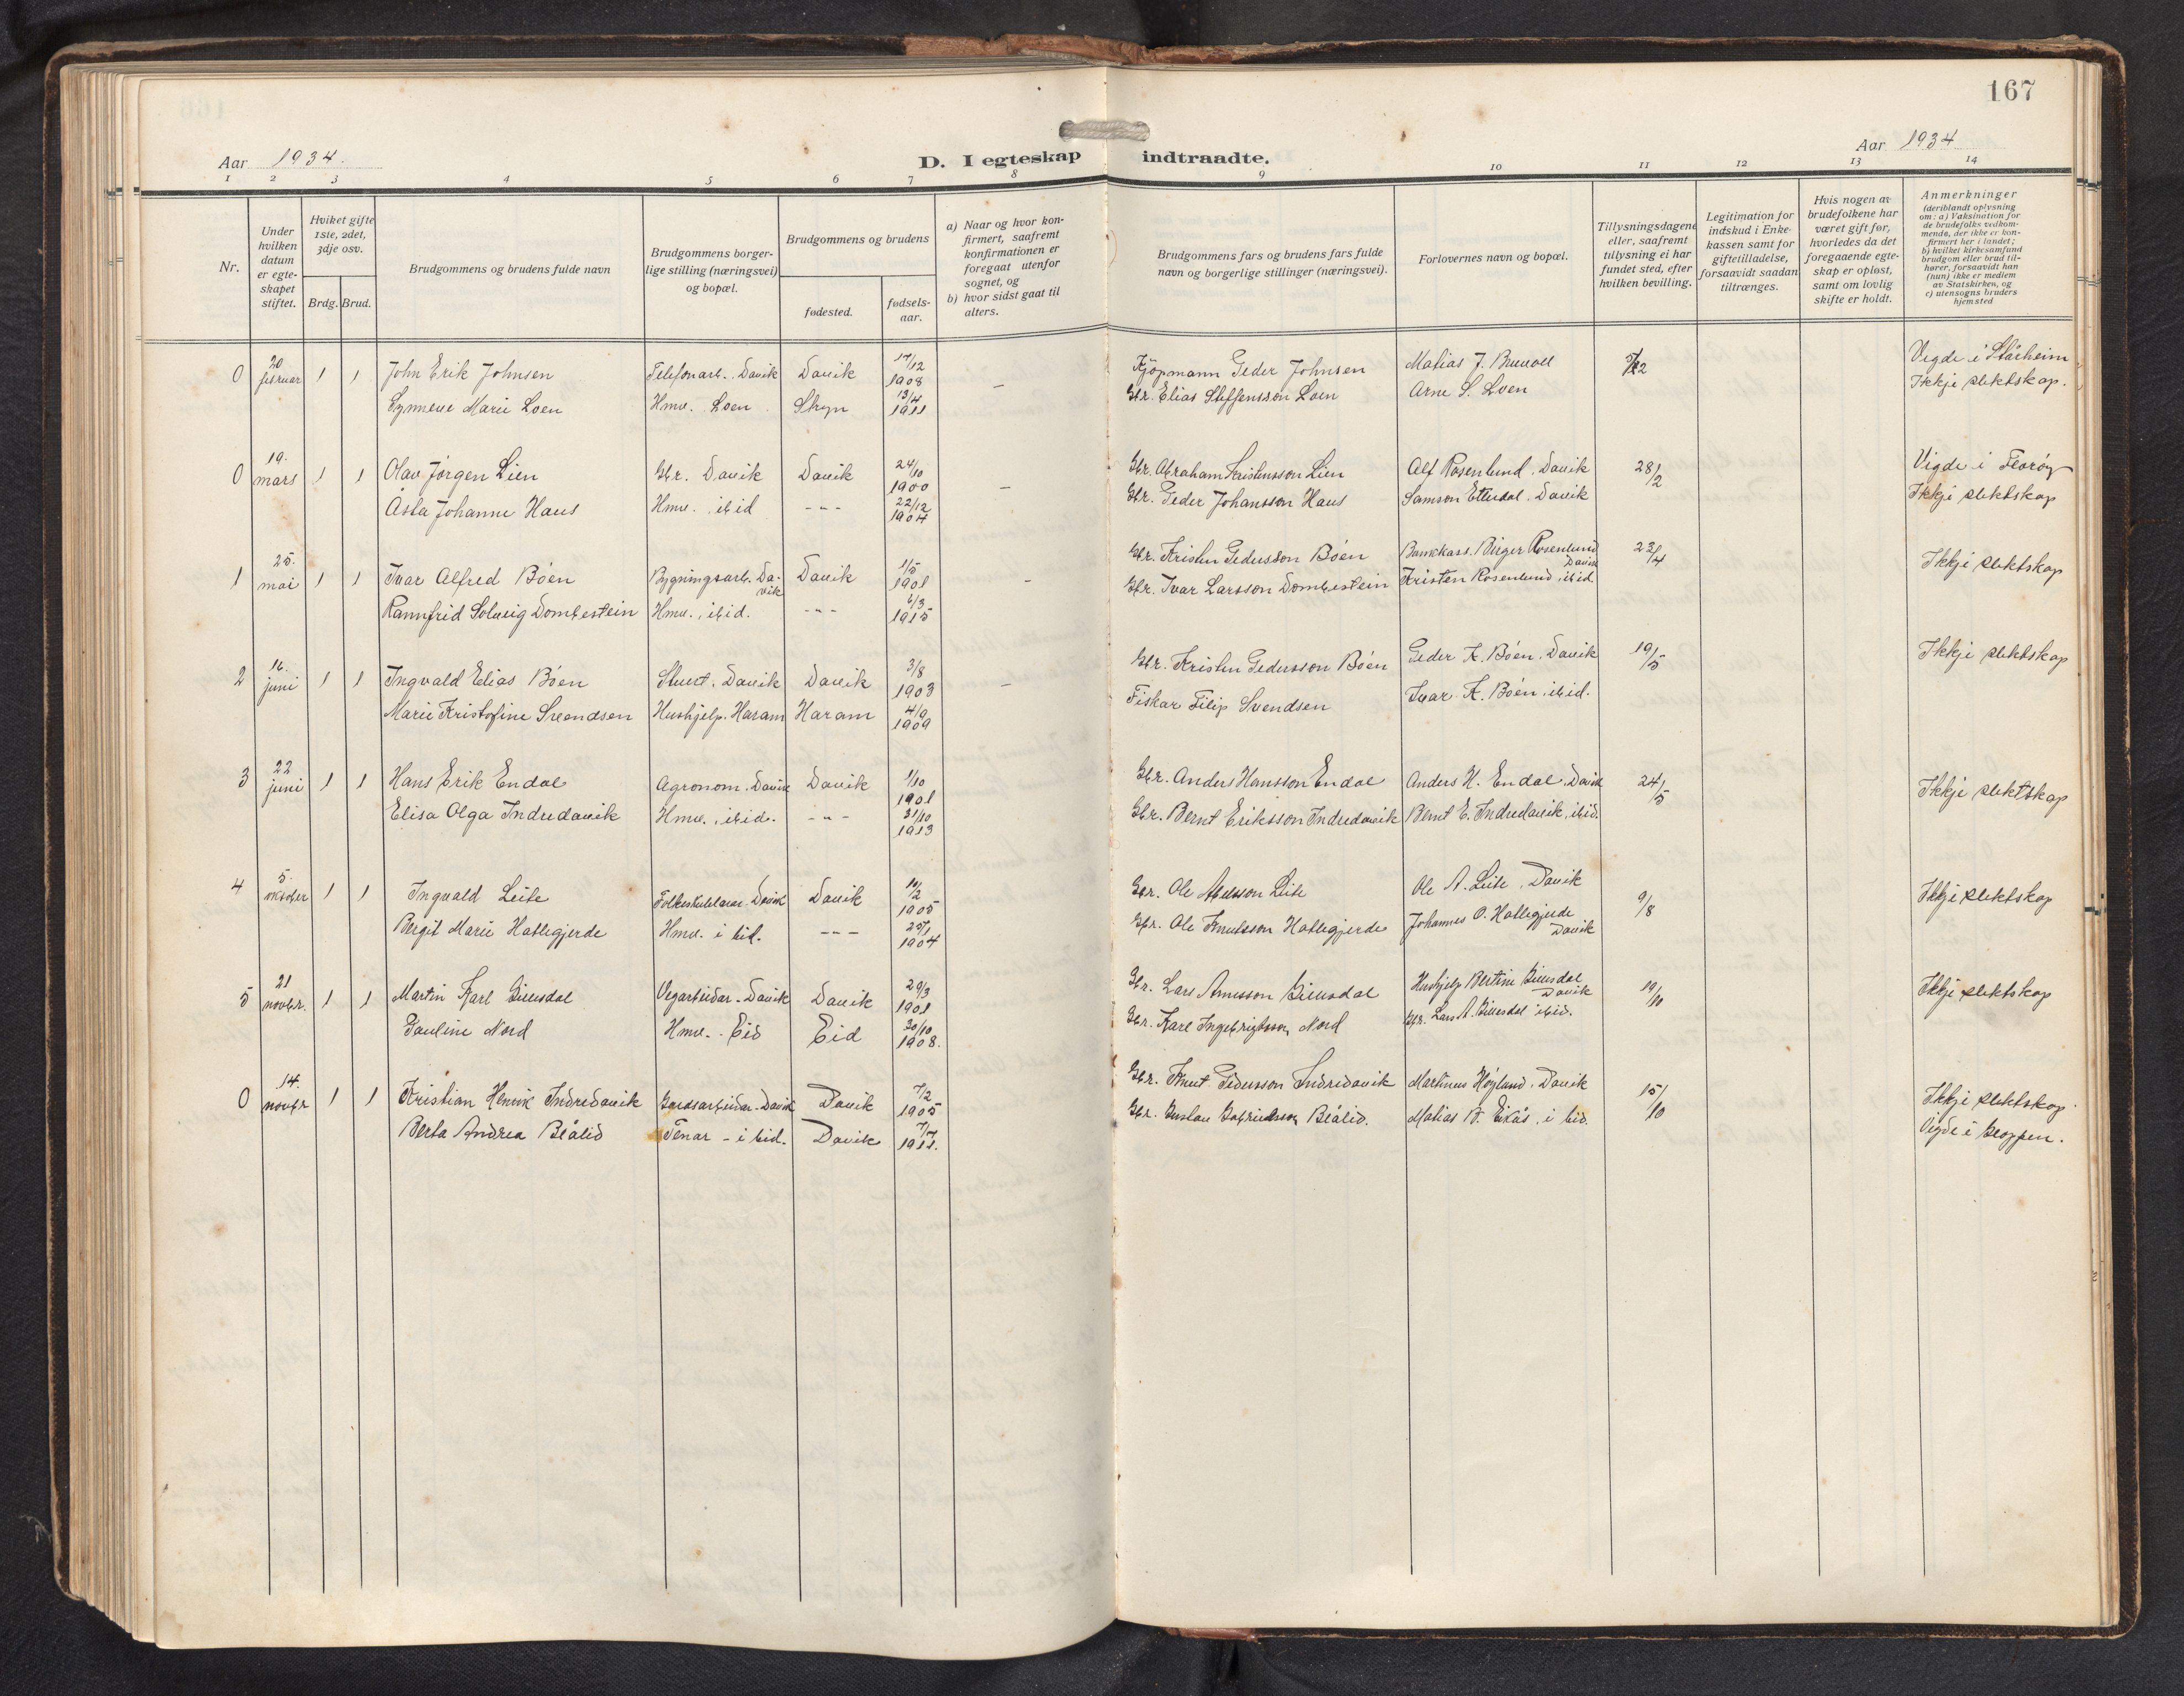 167
Aar 1934.
D. I egteskap indtraadte.
Aar 1934
1 2 3 4 5 6 7 8 9 10 11 12 13 14
Nr.
Under hvilken datum er egteskapet stiftet.
Hviket gifte 1ste, 2det, 3dje osv.
Brdg. Brud.
Brudgommens og brudens fulde navn
Brudgommens borgerlige stilling (næringsvei) og bopæl.
Brudgommens og brudens
fødested.
fødselsaar.
a) Naar og hvor konfirmert, saafremt konfirmationen er foregaat utenfor sognet, og
b) hvor sidst gaat til alters.
Brudgommens fars og brudens fars fulde navn og borgerlige stillinger (næringsvei).
Forlovernes navn og bopæl.
Tillysningsdagene eller, saafremt tillysning ei har fundet sted, efter hvilken bevilling.
Legitimation for indskud i Enkekassen samt for giftetilladelse, forsaavidt saadan tiltrænges.
Hvis nogen av brudefolkene har været gift før, hvorledes da det foregaaende egteskap er opløst, samt om lovlig skifte er holdt.
Anmerkninger (deriblandt oplysning om: a) Vaksination for de brudefolks vedkommende, der ikke er konfirmert her i landet; b) hvilket kirkesamfund brudgom eller brud tilhører, forsaavidt han (hun) ikke er medlem av Statskirken, og c) utensogns bruders hjemsted
0 20 februar 1 1 John Erik Johnsen Telefonarb. Davik Davik 17/12 1908 – Kjøpmann Peder Johnsen Matias J. Bruvoll Vigde i Stårheim
Synneve Marie Loen Hmv. Loen Stryn 13/4 1911 Gbr. Elias Steffensson Loen Arne S. Loen Ikkje slektskap.
0 19. mars 1 1 Olav Jørgen Lien Gbr. Davik Davik 24/10 1900 – Gbr. Abraham Kristensson Lien Alf Rosenlund, Davik 28/2 Vigde i Florøy
Åsta Johanne Haus Hmv. ibid - - - 22/12 1904 Gbr. Peder Johansson Haus Samson Ettesdal, Davik Ikkje slektskap
1 25. mai 1 1 Ivar Alfred Bøen Bygningsarb. Davik Davik 1/5 1901 - Gbr. Kristen Pedersson Bøen Bankkass. Birger Rosenlund Davik 23/4 Ikkje slektskap
Rannfrid Solveig Dombestein Hmv., ibid. - - - 6/3 1915 Gbr. Ivar Larsson Dombestein Kristen Rosenlund, ibid.
2 16. juni 1 1 Ingvald Elias Bøen Stuert. Davik Davik 3/8 1903 – Gbr. Kristen Pedersson Bøen Peder K. Bøen, Davik 19/5 Ikkje slektskap
Marie Kristofine Svendsen Hushjelp. Haram Haram 4/9 1909 Fiskar Filip Svendsen Ivar K. Bøen, ibid.
3 22 juni 1 1 Hans Erik Endal Agronom. Davik Davik 1/10 1901 Gbr. Anders Hansson Endal Anders H. Endal, Davik 24/5 Ikkje slektskap
Elisa Olga Indredavik Hmv., ibid. - - - 31/10 1913 Gbr. Bernt Eriksson Indredavik Bernt E. Indredavik, ibid.
4 5. oktober 1 1 Ingvald Leite Folkeskulelærar. Davik Davik 1905 Gbr. Ole Leite Ole A. Leite, Davik 9/8 Ikkje slektskap
Bergit Marie Hatlegjerde Hmv. i bid. - - - 1904 Gbr. Ole Knutsson Hatlegjerde Johannes O. Hatlegjerde Davik
5 21 novbr. 1 1 Martin Karl Gilesdal Vegarbeidar - Davik Davik 29/3 1901 Gbr. Lars Arnesson Gilesdal Hushjelp Bertine Gilesdal Davik 19/10 Ikkje slektskap
Pauline Nord Hmv. - Eid Eid 30/10 1908. Gbr. Karl Ingebrigtsson Nord Gbr. Lars A. Gilesdal ibid.
0 14. novbr 1 1 Kristian Henrik Indredavik Gardsarbeidar - Davik Davik 7/2 1905 Gbr. Knut Pedersson Indredavik Martinus Høylund, Davik 15/10 Ikkje slektskap
Berta Andrea Blålid Tenar - i bid. Davik 7/7 1911. Gbr. Gustav Gabrielsson Blålid. Matias B. Eikås, i bid. Vigde i Gloppen.